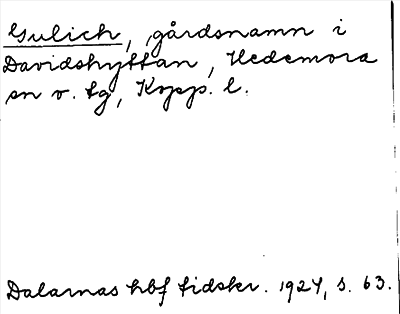 Gulich, gårdsnamn i
Davidshyttan, Hedemora
sn v. tg, Kopp. l.
Dalarnas hbf tidskr. 1924, s. 63.